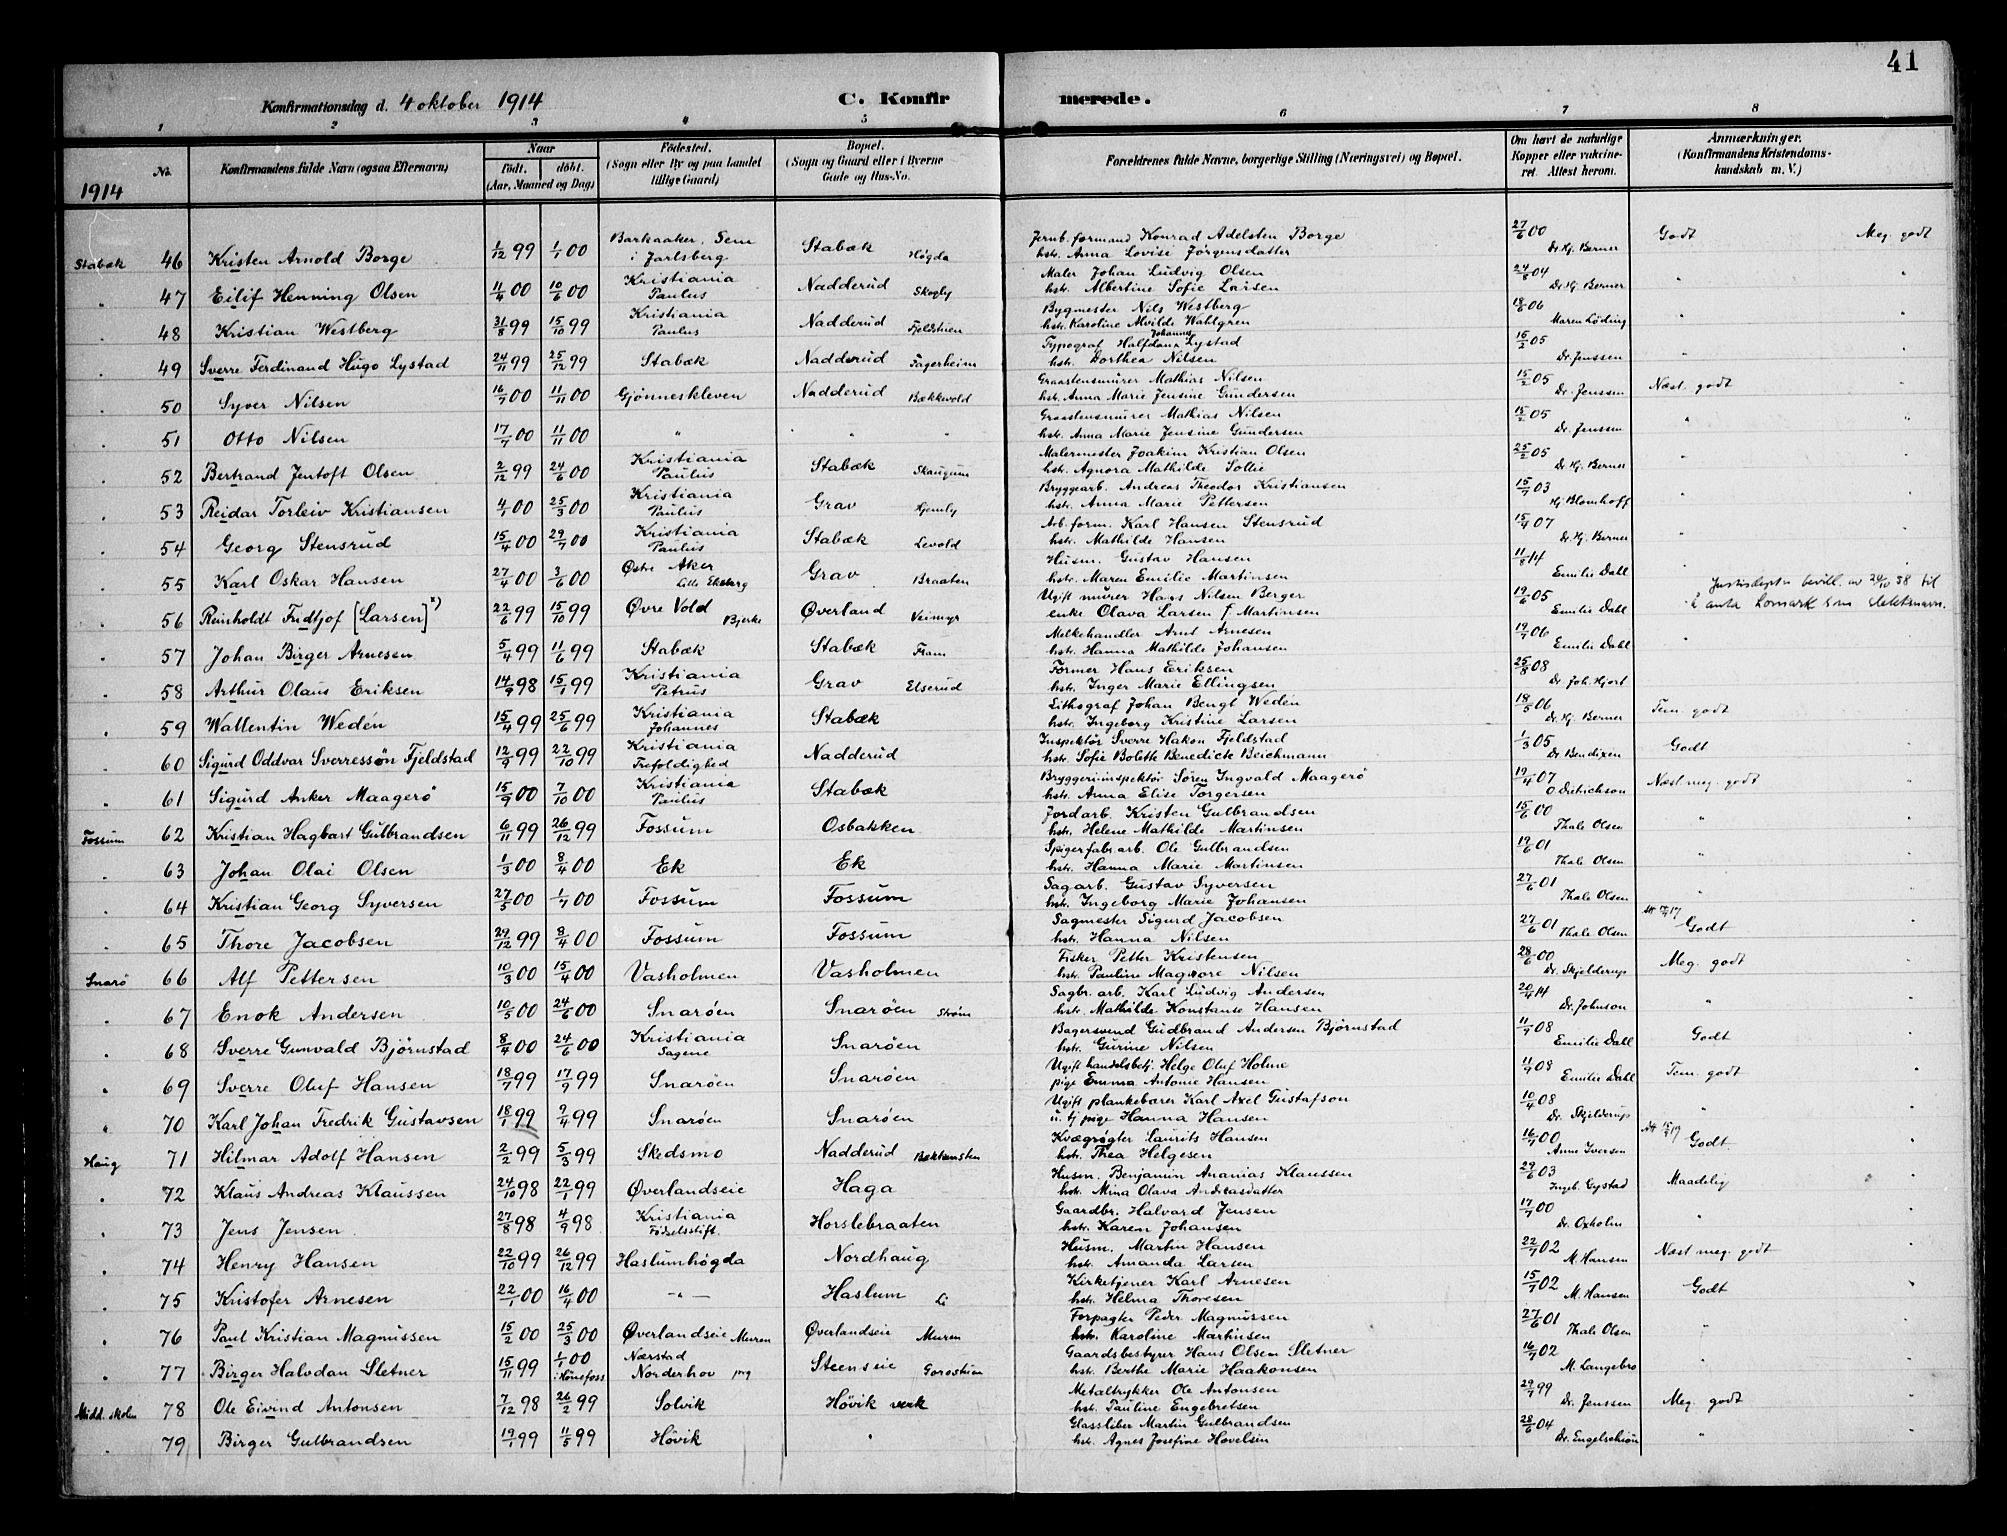 41
Konfirmationsdag d. 4 oktober 1914 C. Konfir merede.
1 2 3 4 5 6 7 8
1914 No. Konfirmandens fulde Navn (ogsaa Efternavn) Naar Født. døbt. (Aar, Maaned og Dag) Fødested. (Sogn eller By og paa Landet tillige Gaard) Bopæl. (Sogn og Gaard eller i Byerne Gade og Hus-No. Forældrenes fulde Navne, borgerlige Stilling (Næringsvei) og Bopæl. Om havt de naturlige Kopper eller vakcineret. Attest herom. Anmærkninger. (Konfirmandens Kristendomskundskab m. V.)
Stabæk 46 Kristen Arnold Borge 1/12 99 1/1 00 Barkaaker, Sem i Jarlsberg Stabæk Høgda Jernb. formand Konrad Adelsten Borge hstr. Anna Lovise Jørgensdatter 27/6 00 Dr. Hj. Berner Godt Meg. godt
" 47 Eilif Henning Olsen 11/4 00 10/6 00 Kristiania Paulus Nadderud Skogly Maler Johan Ludvig Olsen hstr. Albertine Sofie Larsen 24/8 04 Dr. Hj. Berner " "
" 48 Kristian Westberg 31/8 99 15/10 99 Kristiania Paulus Nadderud Fjeldstuen Bygmester Nils Westberg hstr. Karoline Alvilde Wahlgren 18/6 06 Maren Löding " "
" 49 Sverre Ferdinand Hugo Lystad 24/11 99 25/12 99 Stabæk Nadderud Fagerheim Typograf Halfdan Johannes Lystad hstr. Dorthea Nilsen 16/2 05 Dr. Jenssen " "
" 50 Syver Nilsen 16/7 00 11/11 00 Gjønneskleven Nadderud Bækkvold Graastensmurer Mathias Nilsen hstr. Anna Marie Jensine Gundersen 15/2 05 Dr. Jenssen Næst. godt "
" 51 Otto Nilsen 17/7 00 11/11 00 " " " Graastensmurer Mathias Nilsen hstr. Anna Marie Jensine Gundersen 15/2 05 Dr. Jenssen " "
" 52 Bertrand Jentoft Olsen 2/12 99 24/6 00 Kristiania Paulus Stabæk Skaugum Malermester Joakim Kristian Olsen hstr. Agnora Mathilde Sollie 25/2 05 Dr. Hj. Berner "
" 53 Reidar Torleiv Kristiansen 4/1 00 25/3 00 Kristiania Paulus Grav Hjemly Bryggearb. Andreas Theodor Kristiansen hstr. Anna Marie Pettersen 15/7 03 Hj. Blomhoff "
" 54 Georg Stensrud 15/4 00 29/7 00 Kristiania Paulus Stabæk Levold Arb. form. Karl Hansen Stensrud hstr. Mathilde Hansen 15/4 07 Dr. Hj. Berner " "
" 55 Karl Oskar Hansen 27/4 00 3/6 00 Østre Aker Lille Ekeberg Grav Braaten Husm. Gustav Hansen hstr. Maren Emilie Martinsen 11/8 14 Emilie Dahl "
" 56 Reinholdt Fridtjof [Larsen] x) 22/6 99 15/10 99 Øvre Vold Bjerke Øverland Veimyr Ugift murer Hans Nilsen Berger enke Olava Larsen f. Martinsen 19/6 05 Emilie Dahl Justisdeptn bevill. av 20/10 58 til å anta Lomark som slektsnavn.
" 57 Johan Birger Arnesen 5/4 99 11/6 99 Stabæk Stabæk Fram Melkehandler Arnt Arnesen hstr. Hanna Mathilde Johansen 19/7 06 Emilie Dahl "
" 58 Arthur Olaus Eriksen 14/9 98 15/1 99 Kristiania Petrus Grav Elserud Former Hans Eriksen hstr. Inger Marie Ellingsen 25/8 08 Dr. Joh. Hjort "
" 59 Wallentin Wedén 15/4 99 25/6 99 Kristiania Johannes Stabæk Lithograf Johan Bengt Wedén hstr. Ingeborg Kristine Larsen 18/5 06 Dr. Hj. Berner Tem. godt "
" 60 Sigurd Oddvar Sverressøn Fjeldstad 12/9 99 22/10 99 Kristiania Trefoldighed Nadderud Inspektør Sverre Hakon Fjeldstad hstr. Sofie Bolette Benedicte Beichmann 1/3 05 Dr. Bendixen Godt "
" 61 Sigurd Anker Maagerø 15/9 00 7/10 00 Kristiania Paulus Stabæk Bryggeriinspektør Søren Ingvald Maagerø hstr. Anna Elise Torgersen 19/4 07 O Dietrichson Næst meg. godt "
Fossum 62 Kristian Hagbart Gulbrandsen 6/11 99 26/12 99 Fossum Osbakken Jordarb. Kristen Gulbrandsen hstr. Helene Mathilde Martinsen 15/6 00 Thale Olsen "
" 63 Johan Olai Olsen 1/3 00 8/4 00 Ek Ek Spigerfabr. arb. Ole Gulbrandsen hstr. Hanna Marie Martinsen 19/6 01 Thale Olsen "
" 64 Kristian Georg Syversen 27/5 00 1/7 00 Fossum Fossum Sagarb. Gustav Syversen hstr. Ingeborg Marie Johansen 27/6 01 Thale Olsen "
" 65 Thore Jacobsen 29/12 99 8/4 00 Fossum Fossum Sagmester Sigurd Jacobsen hstr. Hanna Nilsen 27/6 01 Thale Olsen Godt
Snarö 66 Alf Pettersen 10/3 00 15/4 00 Vasholmen Vasholmen Fisker Petter Kristensen hstr. Pauline Magnore Nilsen 28/6 00 Dr. Skjelderup Meg. godt "
" 67 Enok Andersen 10/5 00 24/6 00 Snarøen Snarøen Strøm Sagbr. arb. Karl Ludvig Andersen hstr. Mathilde Konstanse Hansen 20/4 14 Dr. Johnson " "
" 68 Sverre Gunvald Bjørnstad 8/4 00 24/6 00 Kristiania Sagene Snarøen Bagersvend Gudbrand Andersen Bjørnstad hstr. Gurine Nilsen 11/9 08 Emilie Dahl Godt
" 69 Sverre Oluf Hansen 18/7 99 17/9 99 Snarøen Snarøen Ugift handelsbetj. Helge Oluf Holme pige Emma Antonie Hansen 11/9 08 Emilie Dahl Tem. godt "
" 70 Karl Johan Fredrik Gustavsen 18/1 99 9/4 99 Snarøen Snarøen Ugift plankebærer Karl Axel Gustafson u. tj. pige Hanna Hansen 10/4 08 Dr. Skjelderup " "
Haug 71 Hilmar Adolf Hansen 2/2 99 5/3 99 Skedsmo Nadderud Bektunsten Kvægrøgter Laurits Hansen hstr. Thea Helgesen 16/7 00 Anne Iversen Godt "
" 72 Klaus Andreas Klaussen 24/10 98 22/1 99 Øverlandseie Haga Husm. Benjamin Ananias Klaussen hstr. Mina Olava Andreasdatter 29/6 03 Ingeb. Gystad Maadelig "
" 73 Jens Jensen 27/8 98 4/9 98 Kristiania Fødselsstift. Horslebraaten Gaardbr. Halvard Jensen hstr. Karen Johansen 17/7 00 Dr. Oxholm "
" 74 Henry Hansen 22/10 99 26/12 99 Haslumhøgda Nordhaug Husm. Martin Hansen hstr. Amanda Larsen 22/7 02 M. Hansen Næst meg. godt
" 75 Kristofer Arnesen 22/1 00 16/4 00 — " — Haslum Li Kirketjener Karl Arnesen hstr. Helma Thoresen 15/7 02 M. Hansen Godt "
" 76 Paul Kristian Magnussen 15/2 00 25/3 00 Øverlandseie Muren Øverlandseie Muren Forpagter Peder Magnussen hstr. Karoline Martinsen 27/6 01 Thale Olsen " "
" 77 Birger Halvdan Sletner 15/11 99 1/1 00 i Hønefoss Nærstad Norderhov prg Steenseie Gorostuen Gaardsbestyrer Hans Olsen Sletner hstr. Berthe Marie Haakonsen 16/7 02 M. Langebro " "
Midd. skolen 78 Ole Eivind Antonsen 7/12 98 26/2 99 Solvik Høvik verk Metaltrykker Ole Antonsen hstr. Pauline Engebretsen 29/7 99 Dr. Jenssen Meg. godt "
" 79 Birger Gulbrandsen 19/1 99 11/5 99 Høvik " Glassliber Martin Gulbrandsen hstr. Agnes Josefine Hovelsen 28/6 04 Dr. Engelschiøn " "